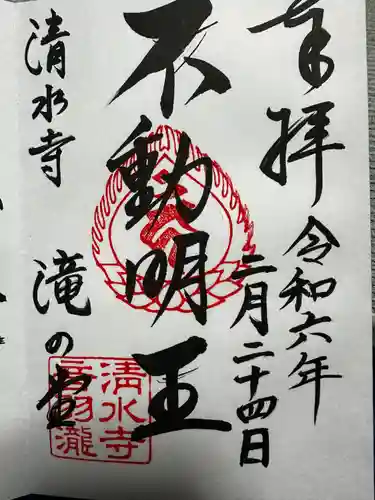 奉拝
令和六年
二月二十四日
不動明王
清水寺
滝の堂
清水寺
音羽瀧